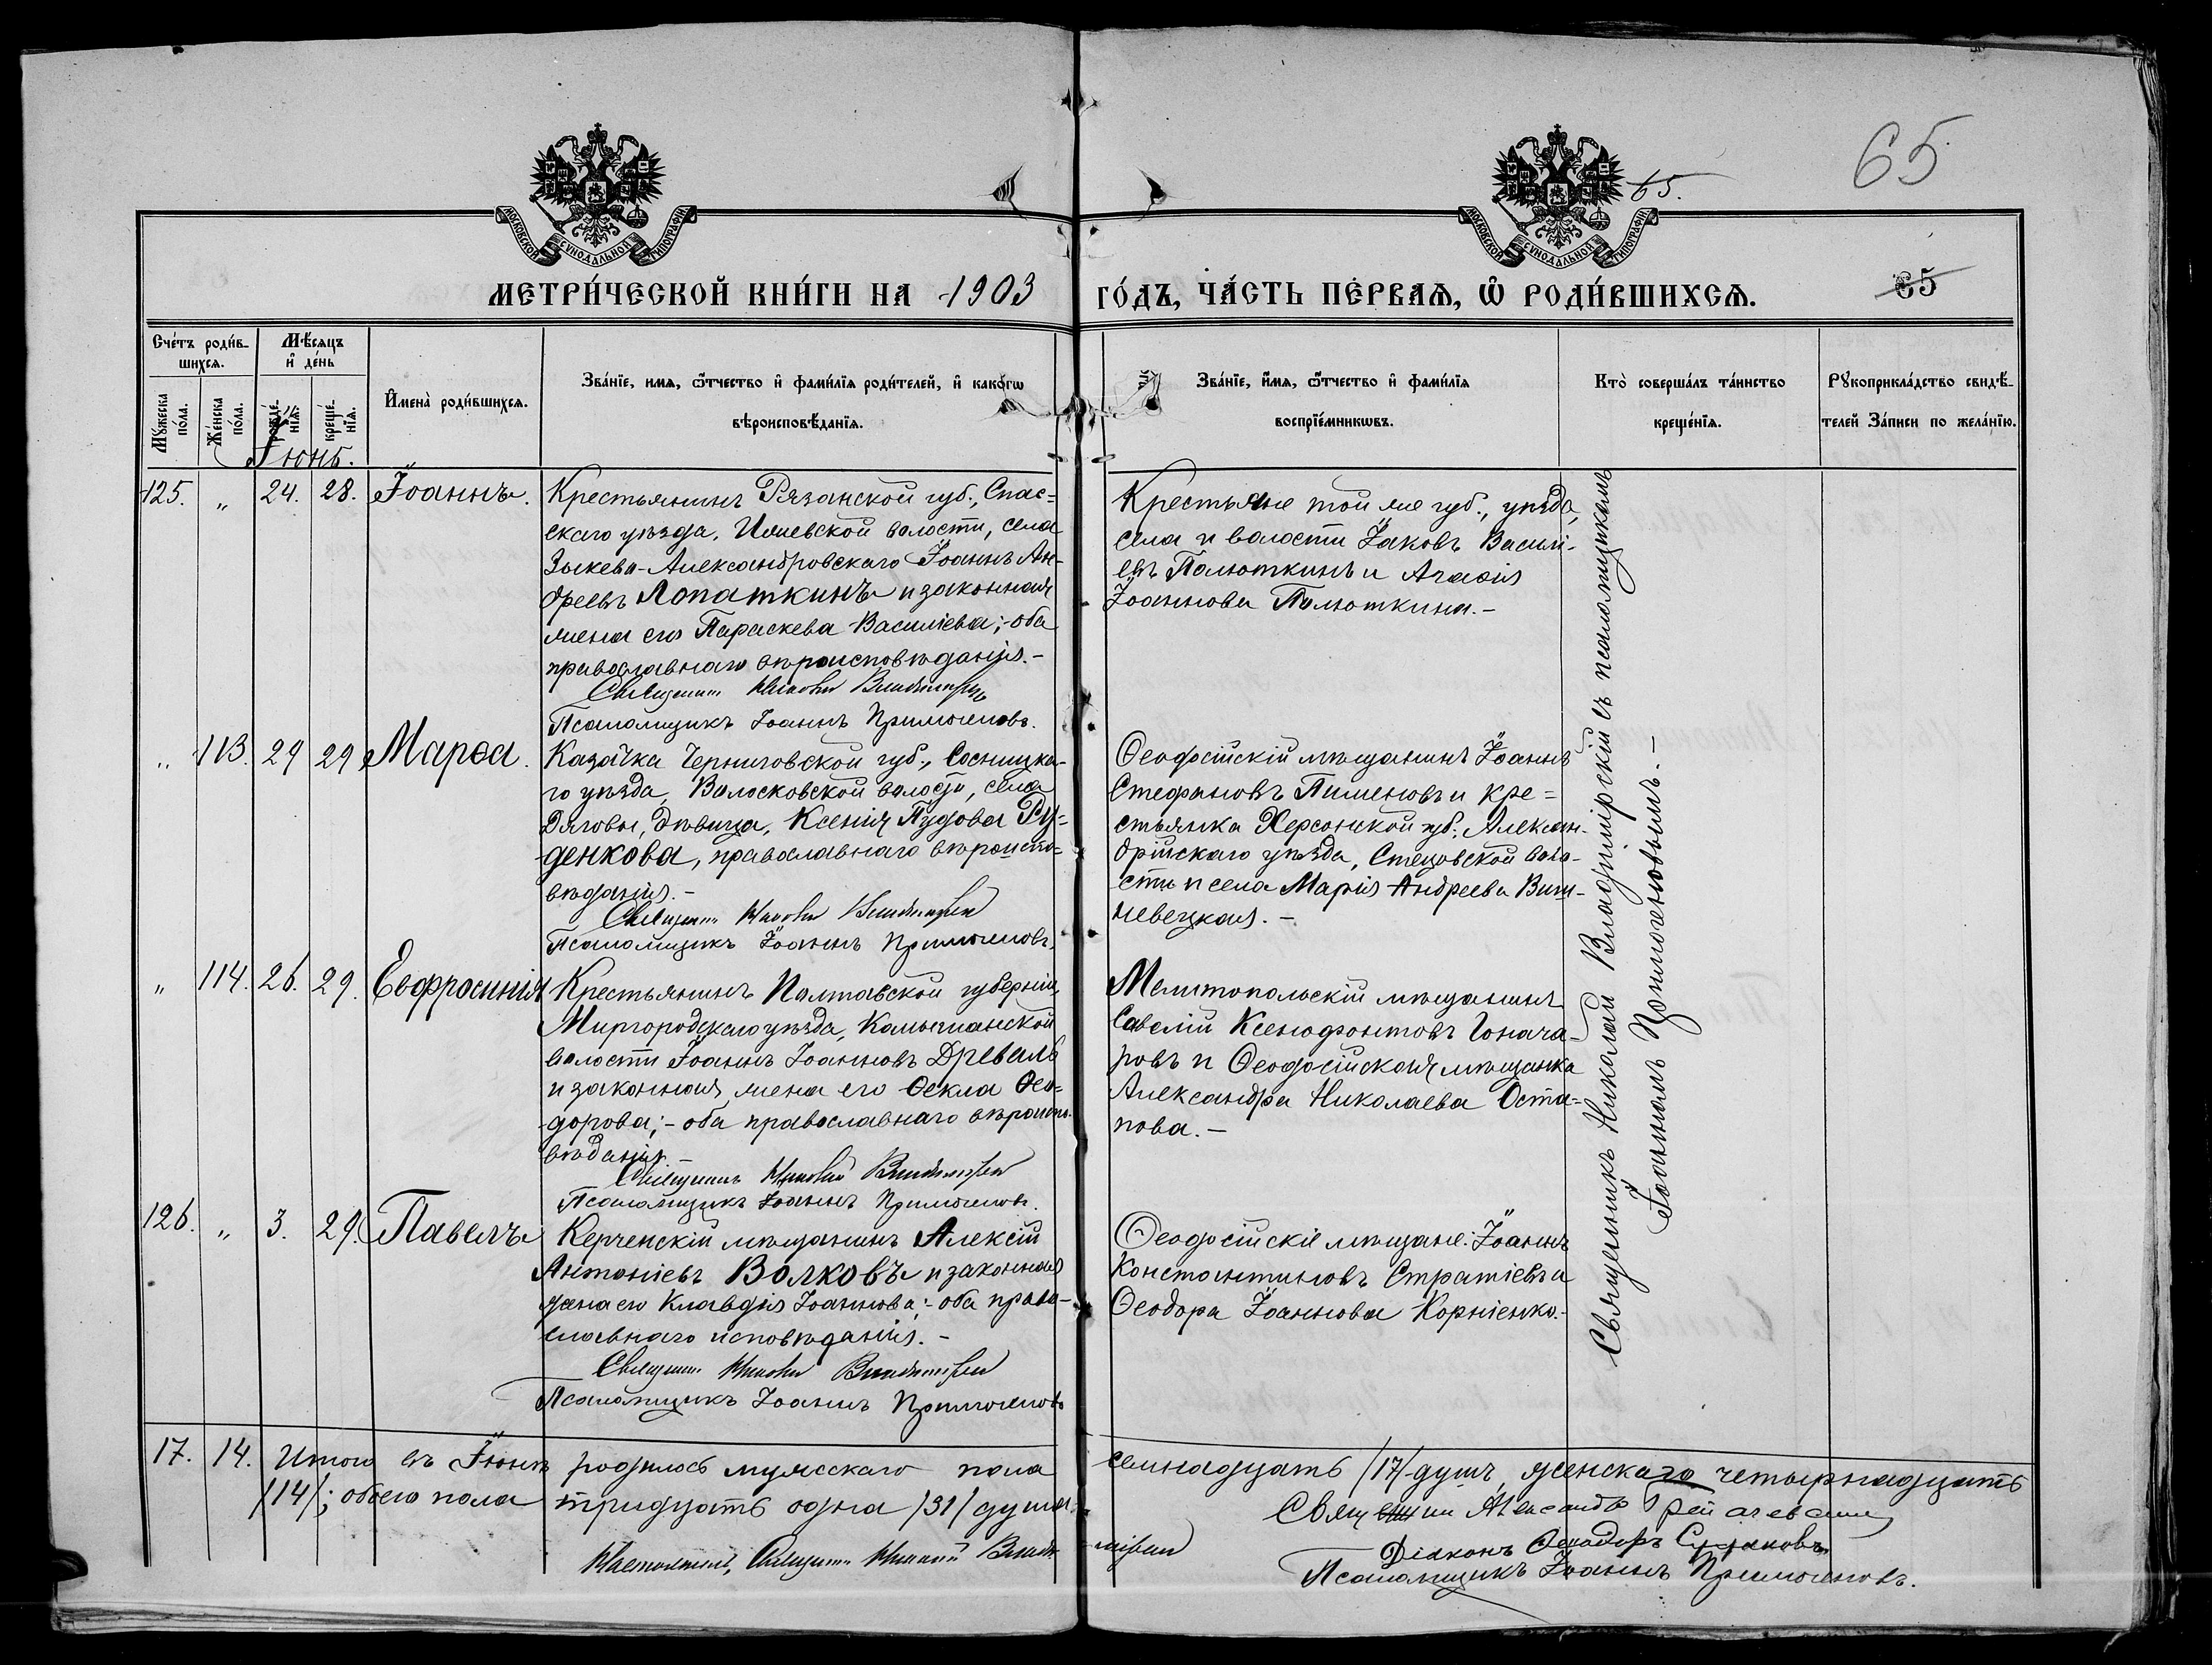 65
65.
МОСКОВСКОЙ СУНОДАЛЬНОЙ ТИПОГРАФІИ
МОСКОВСКОЙ СУНОДАЛЬНОЙ ТИПОГРАФІИ
МЕТРИ́ЧЕСКОЙ КНИ́ГИ НА 1903
ГО́ДЪ, ЧА́СТЬ ПЕ́РВАѦ, Ѡ҆ РОДИ́ВШИХСѦ.
65
Сче́тъ роди́в-
шихсѧ.
Мꙋ́жеска по́ла.
Же́нска по́ла.
Мѣ́сяцъ
и҆ де́нь
рожде́-нїѧ.
креще́-нїѧ.
И҆мена̀ роди́вшихсѧ.
Зва́нїе, имѧ, ѻ҆́тчество и҆ фами́лїѧ роди́телей, и҆ како́гѡ
вѣроисповѣ́данїѧ.
Зва́нїе, и҆́мѧ, ѻ҆́тчество и҆ фами́лїѧ
воспрїе́мникѡвъ.
Кто̀ соверша́лъ та́инство
креще́нїѧ.
Рꙋкоприкла́дство свидѣ́-
телей За́писи по жела́нїю.
Іюнь.
125. „ 24. 28. Іоаннъ.
Крестьянинъ Рязанской губ., Спас=
скаго уѣзда, Ижевской волости, села
Зыкева-Александровскаго Іоаннъ Ан-
дреевъ Лопаткинъ и законная
жена его Параскева Василіева; - оба
православнаго вѣроисповѣданія. -
Священникъ Николай Владимірскій
Псаломщикъ Іоаннъ Примоченовъ.
Крестьяне той же губ., уѣзда,
села и волости Іаковъ Василі-
евъ Полюткинъ и Агаѳія
Іоаннова Полюткина. -
„ 113. 29 29 Марѳа.
Казачка Черниговской губ., Сосницка-
го уѣзда, Волосковской волости, села
Дяговы, дѣвица, Ксенія Пудова Ру=
денкова, православнаго вѣроиспо=
вѣданія. -
Священникъ Николай Владимірскій
Псаломщикъ Іоаннъ Примоченовъ.
Ѳеодосійскій мѣщанинъ Іоаннъ
Стефановъ Пименовъ и кре=
стьянка Херсонской губ., Алексан-
дрійскаго уѣзда, Стецовской воло-
сти и села Марія Андреева Виш-
невецкая. -
„ 114. 26. 29. Евфросинія
Крестьянинъ Полтавской губерніи,
Миргородскаго уѣзда, Комышанской
волости Іоаннъ Іоанновъ Древаль
и законная жена его Ѳекла Ѳео=
дорова; - оба православнаго вѣроиспо-
вѣданія.
Священникъ Николай Владимірскій
Псаломщикъ Іоаннъ Примоченовъ.
Мелитопольскій мѣщанинъ
Савелій Ксенофонтовъ Гонача-
ровъ и Ѳеодосійская мѣщанка
Александра Николаева Оста=
пова. -
126. „ 3. 29. Павелъ
Керченскій мѣщанинъ Алексій
Антоніевъ Волковъ и законная
жена его Клавдія Іоаннова; - оба право-
славнаго исповѣданія. -
Священникъ Николай Владимірскій
Псаломщикъ Іоаннъ Примоченовъ
Ѳеодосійскіе мѣщане: Іоаннъ
Константиновъ Стратіевъ и
Ѳеодора Іоаннова Корніенко. -
Священникъ Николай Владимірскій съ псаломщикомъ
Іоанномъ Примоченовымъ. -
17. 14. Итого въ Іюнѣ родилось мужескаго пола семнадцать /17/ душъ, женскаго четырнадцать
/14/; обоего пола тридцать одна /31/ душа.
Настоятель, Священникъ Николай Владимірскій
Священникъ Александръ
Діаконъ Ѳеодоръ
Псаломщикъ Іоаннъ Примоченовъ.